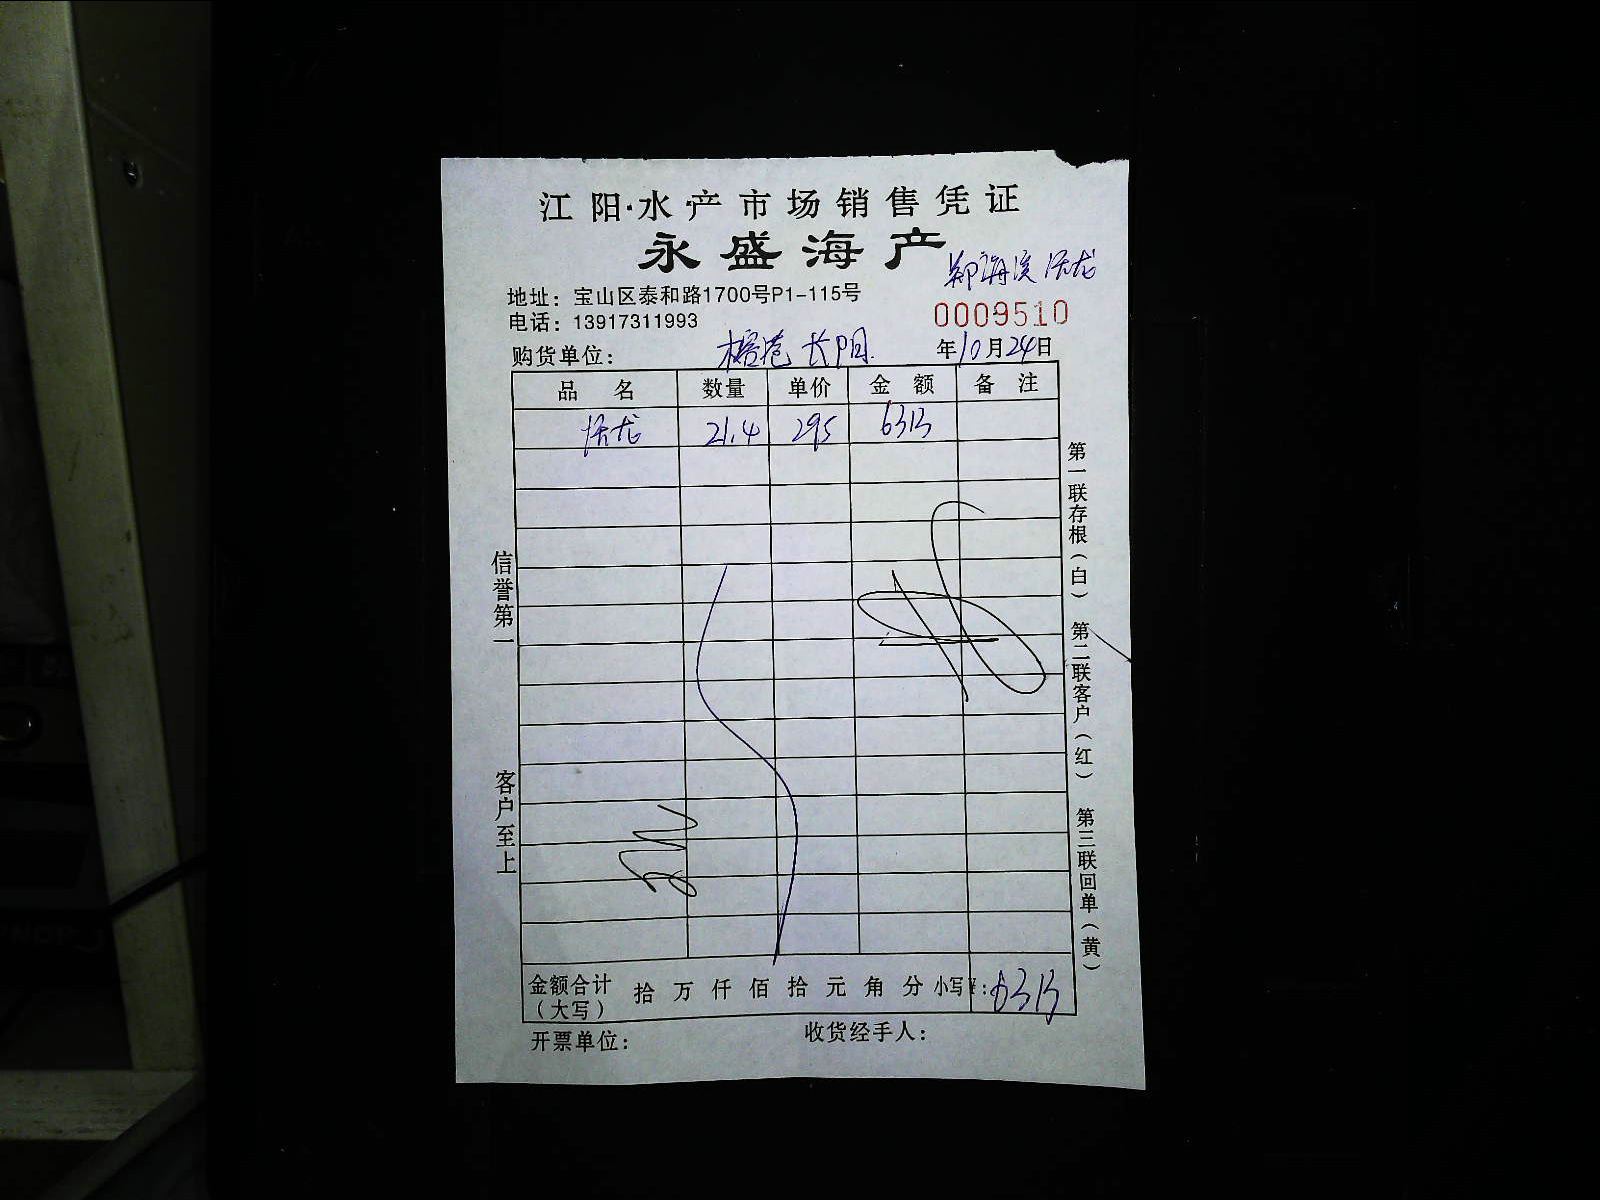 江阳·水产市场销售凭证
永盛海产
郑海滨 活龙
地址：宝山区泰和路1700号P1-115号
电话：13917311993
0009510
购货单位： 榕港 长阳
年10月24日
品 名 数量 单价 金 额 备 注
活龙 21.4 295 6313
信誉第一
客户至上
第一联存根（白） 第二联客户（红） 第三联回单（黄）
金额合计（大写） 拾 万 仟 佰 拾 元 角 分 小写¥：6313
开票单位：
收货经手人：